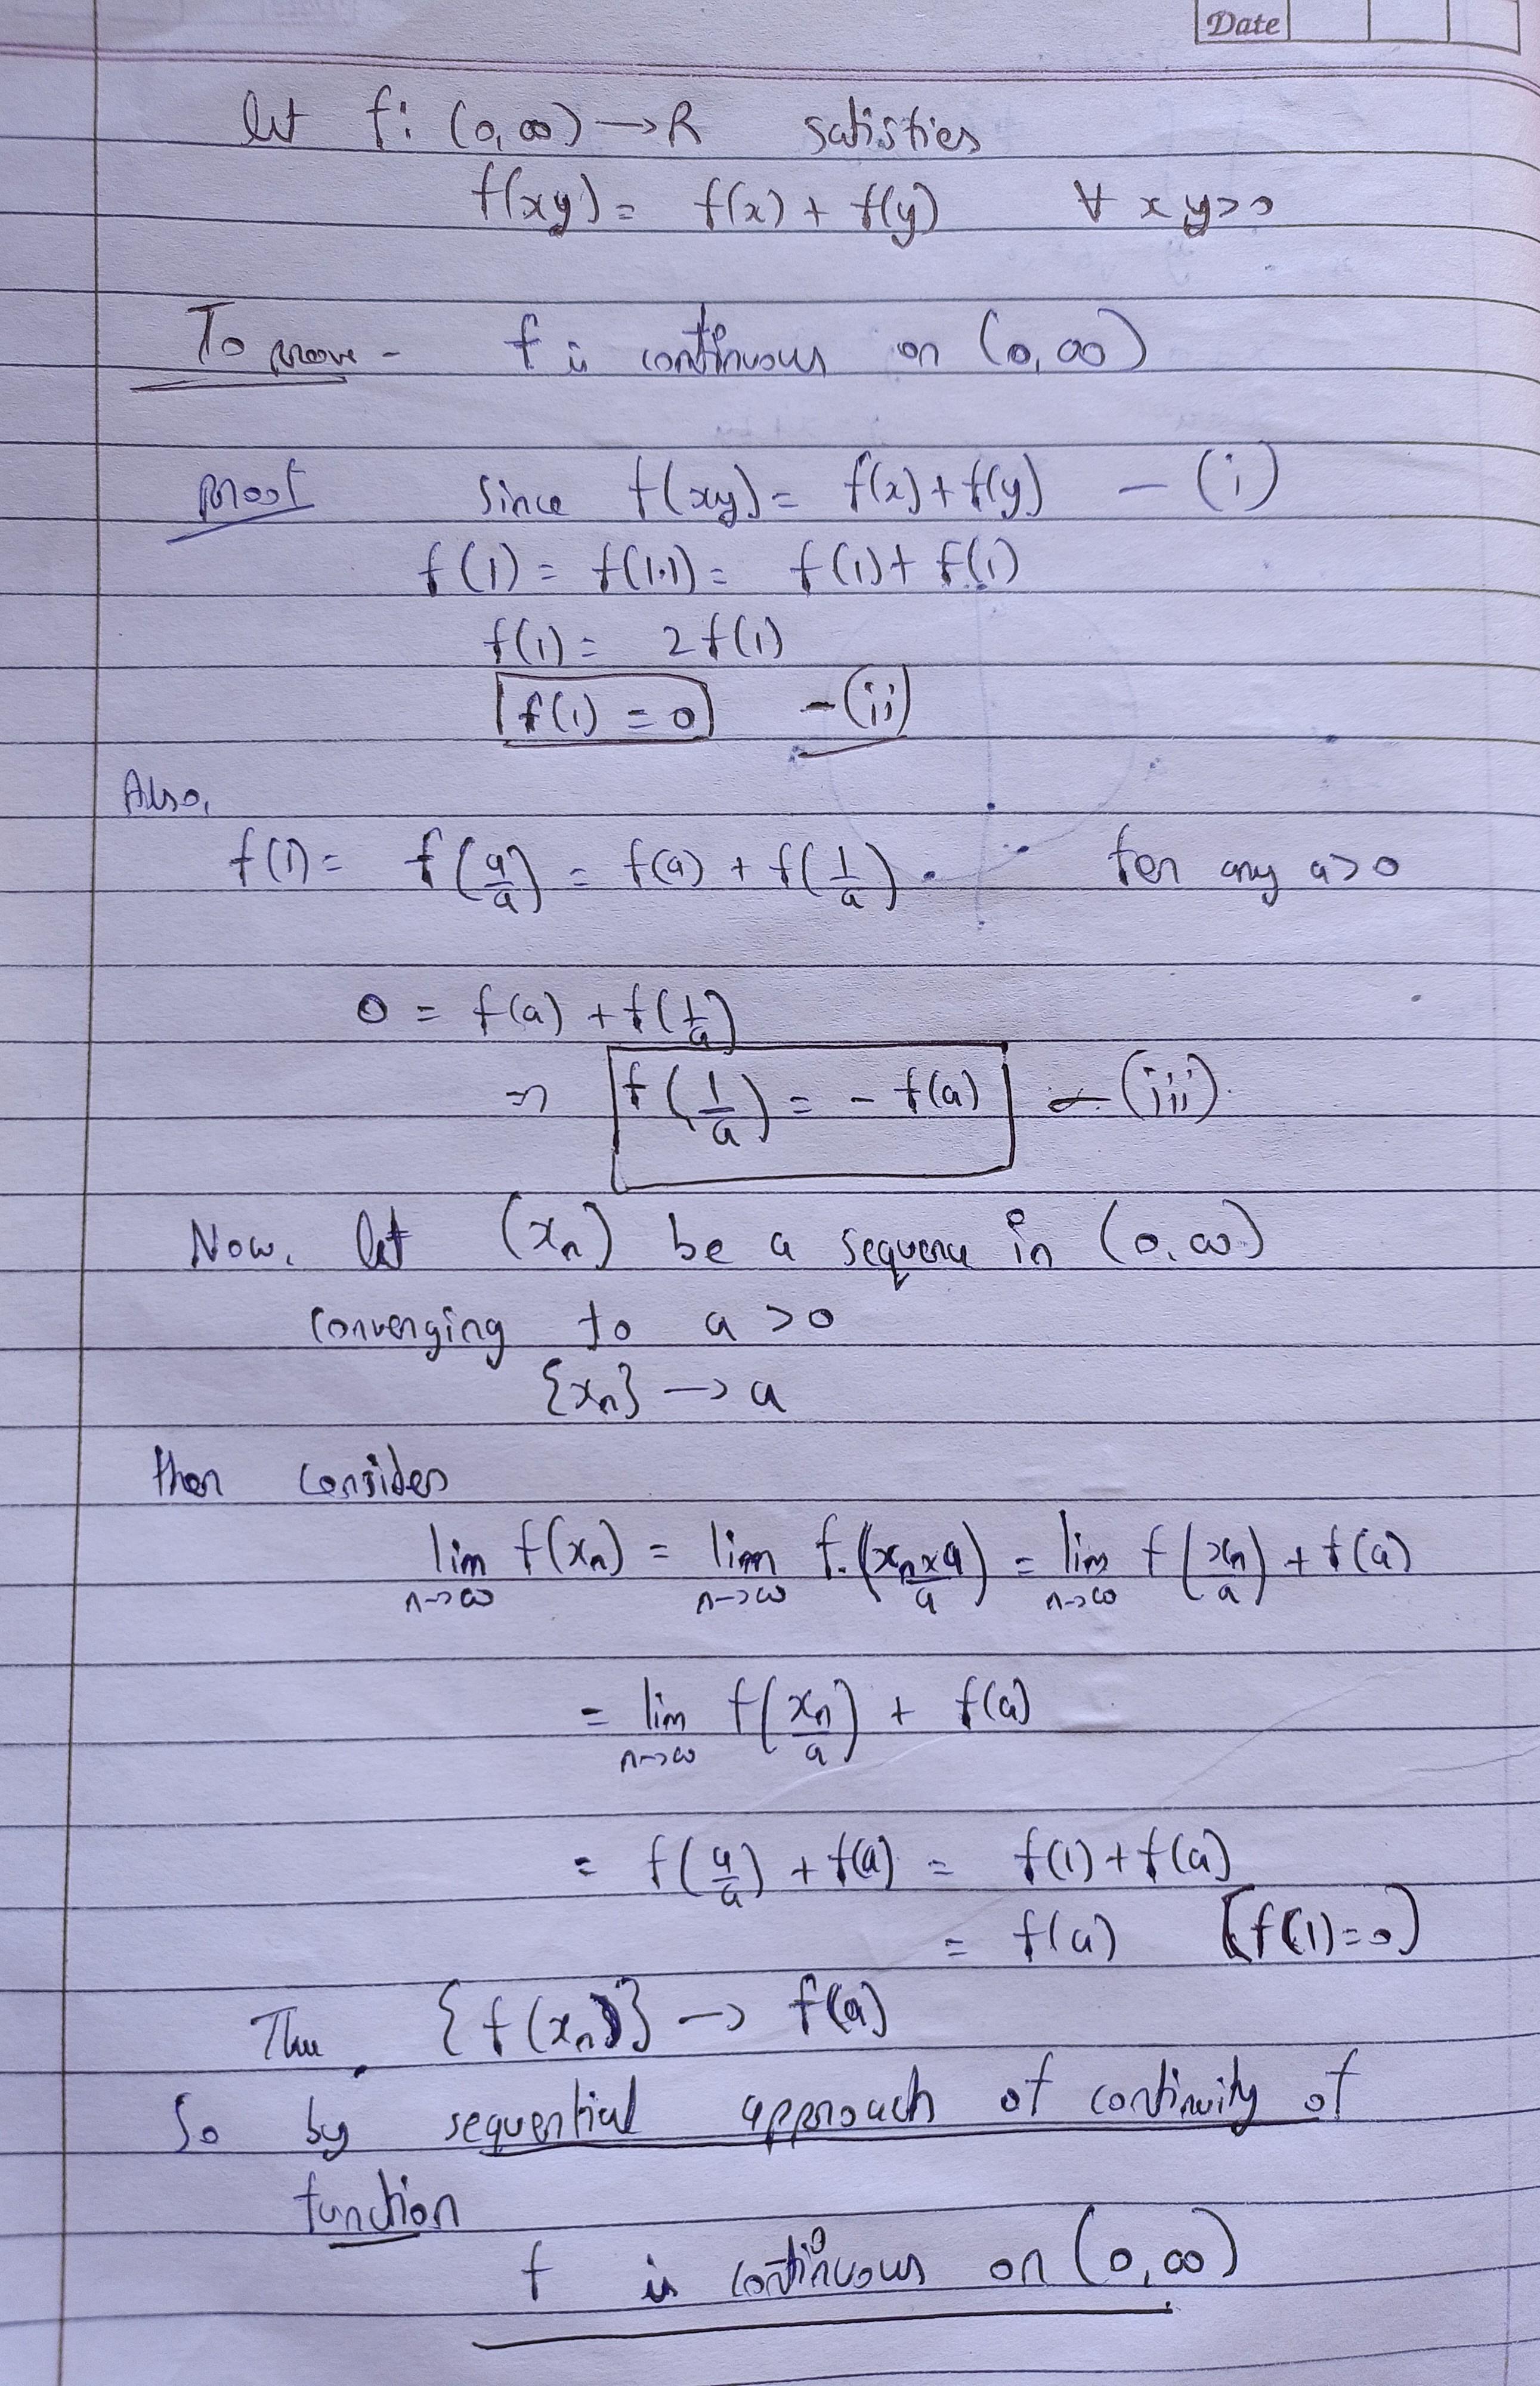 Date
let f: (0,∞) → R satisfies
f(xy) = f(x) + f(y) ∀ x y>0
To prove - f is continuous on (0,∞)
proof Since f(xy) = f(x) + f(y) - (i)
f(1) = f(1.1) = f(1) + f(1)
f(1) = 2f(1)
f(1) = 0 - (ii)
Also,
f(1) = f(a/a) = f(a) + f(1/a). for any a>0
0 = f(a) + f(1/a)
⇒ f(1/a) = - f(a) - (iii).
Now, let (xₙ) be a sequence in (0,∞)
converging to a >0
{xₙ} → a
then consider
lim n→∞ f(xₙ) = lim n→∞ f.(xₙ×a/a) = lim n→∞ f(xₙ/a) + f(a)
= lim n→∞ f(xₙ/a) + f(a)
= f(a/a) + f(a) = f(1) + f(a)
= f(a) [f(1)=0]
Thus {f(xₙ)} → f(a)
So by sequential approach of continuity of
function
f is continuous on (0,∞)